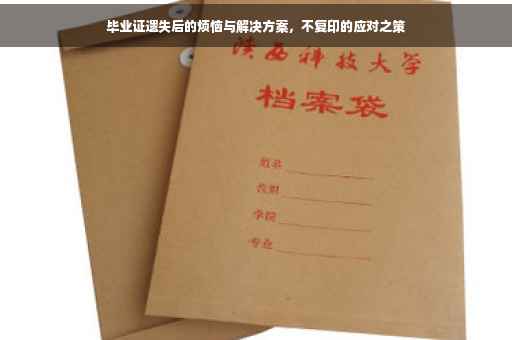 毕业证遗失后的烦恼与解决方案，不复印的应对之策
陕西科技大学
档案袋
姓名
学院
专业